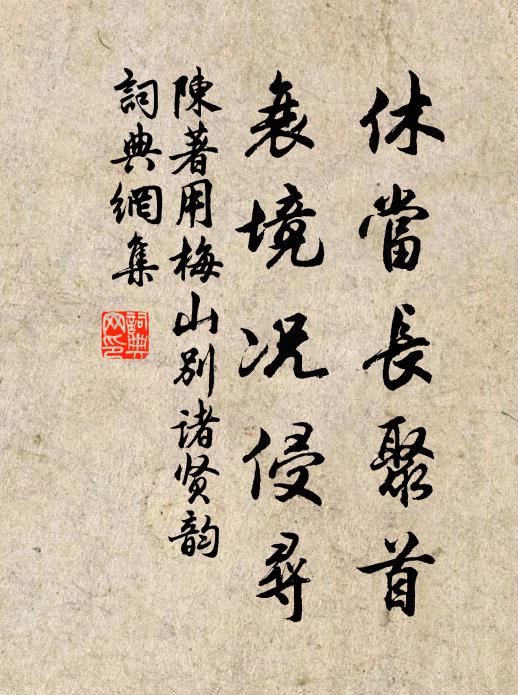 休當長聚首
衰境况侵尋
陳著用梅山別诸贤韵
詞典網集
詞典網印